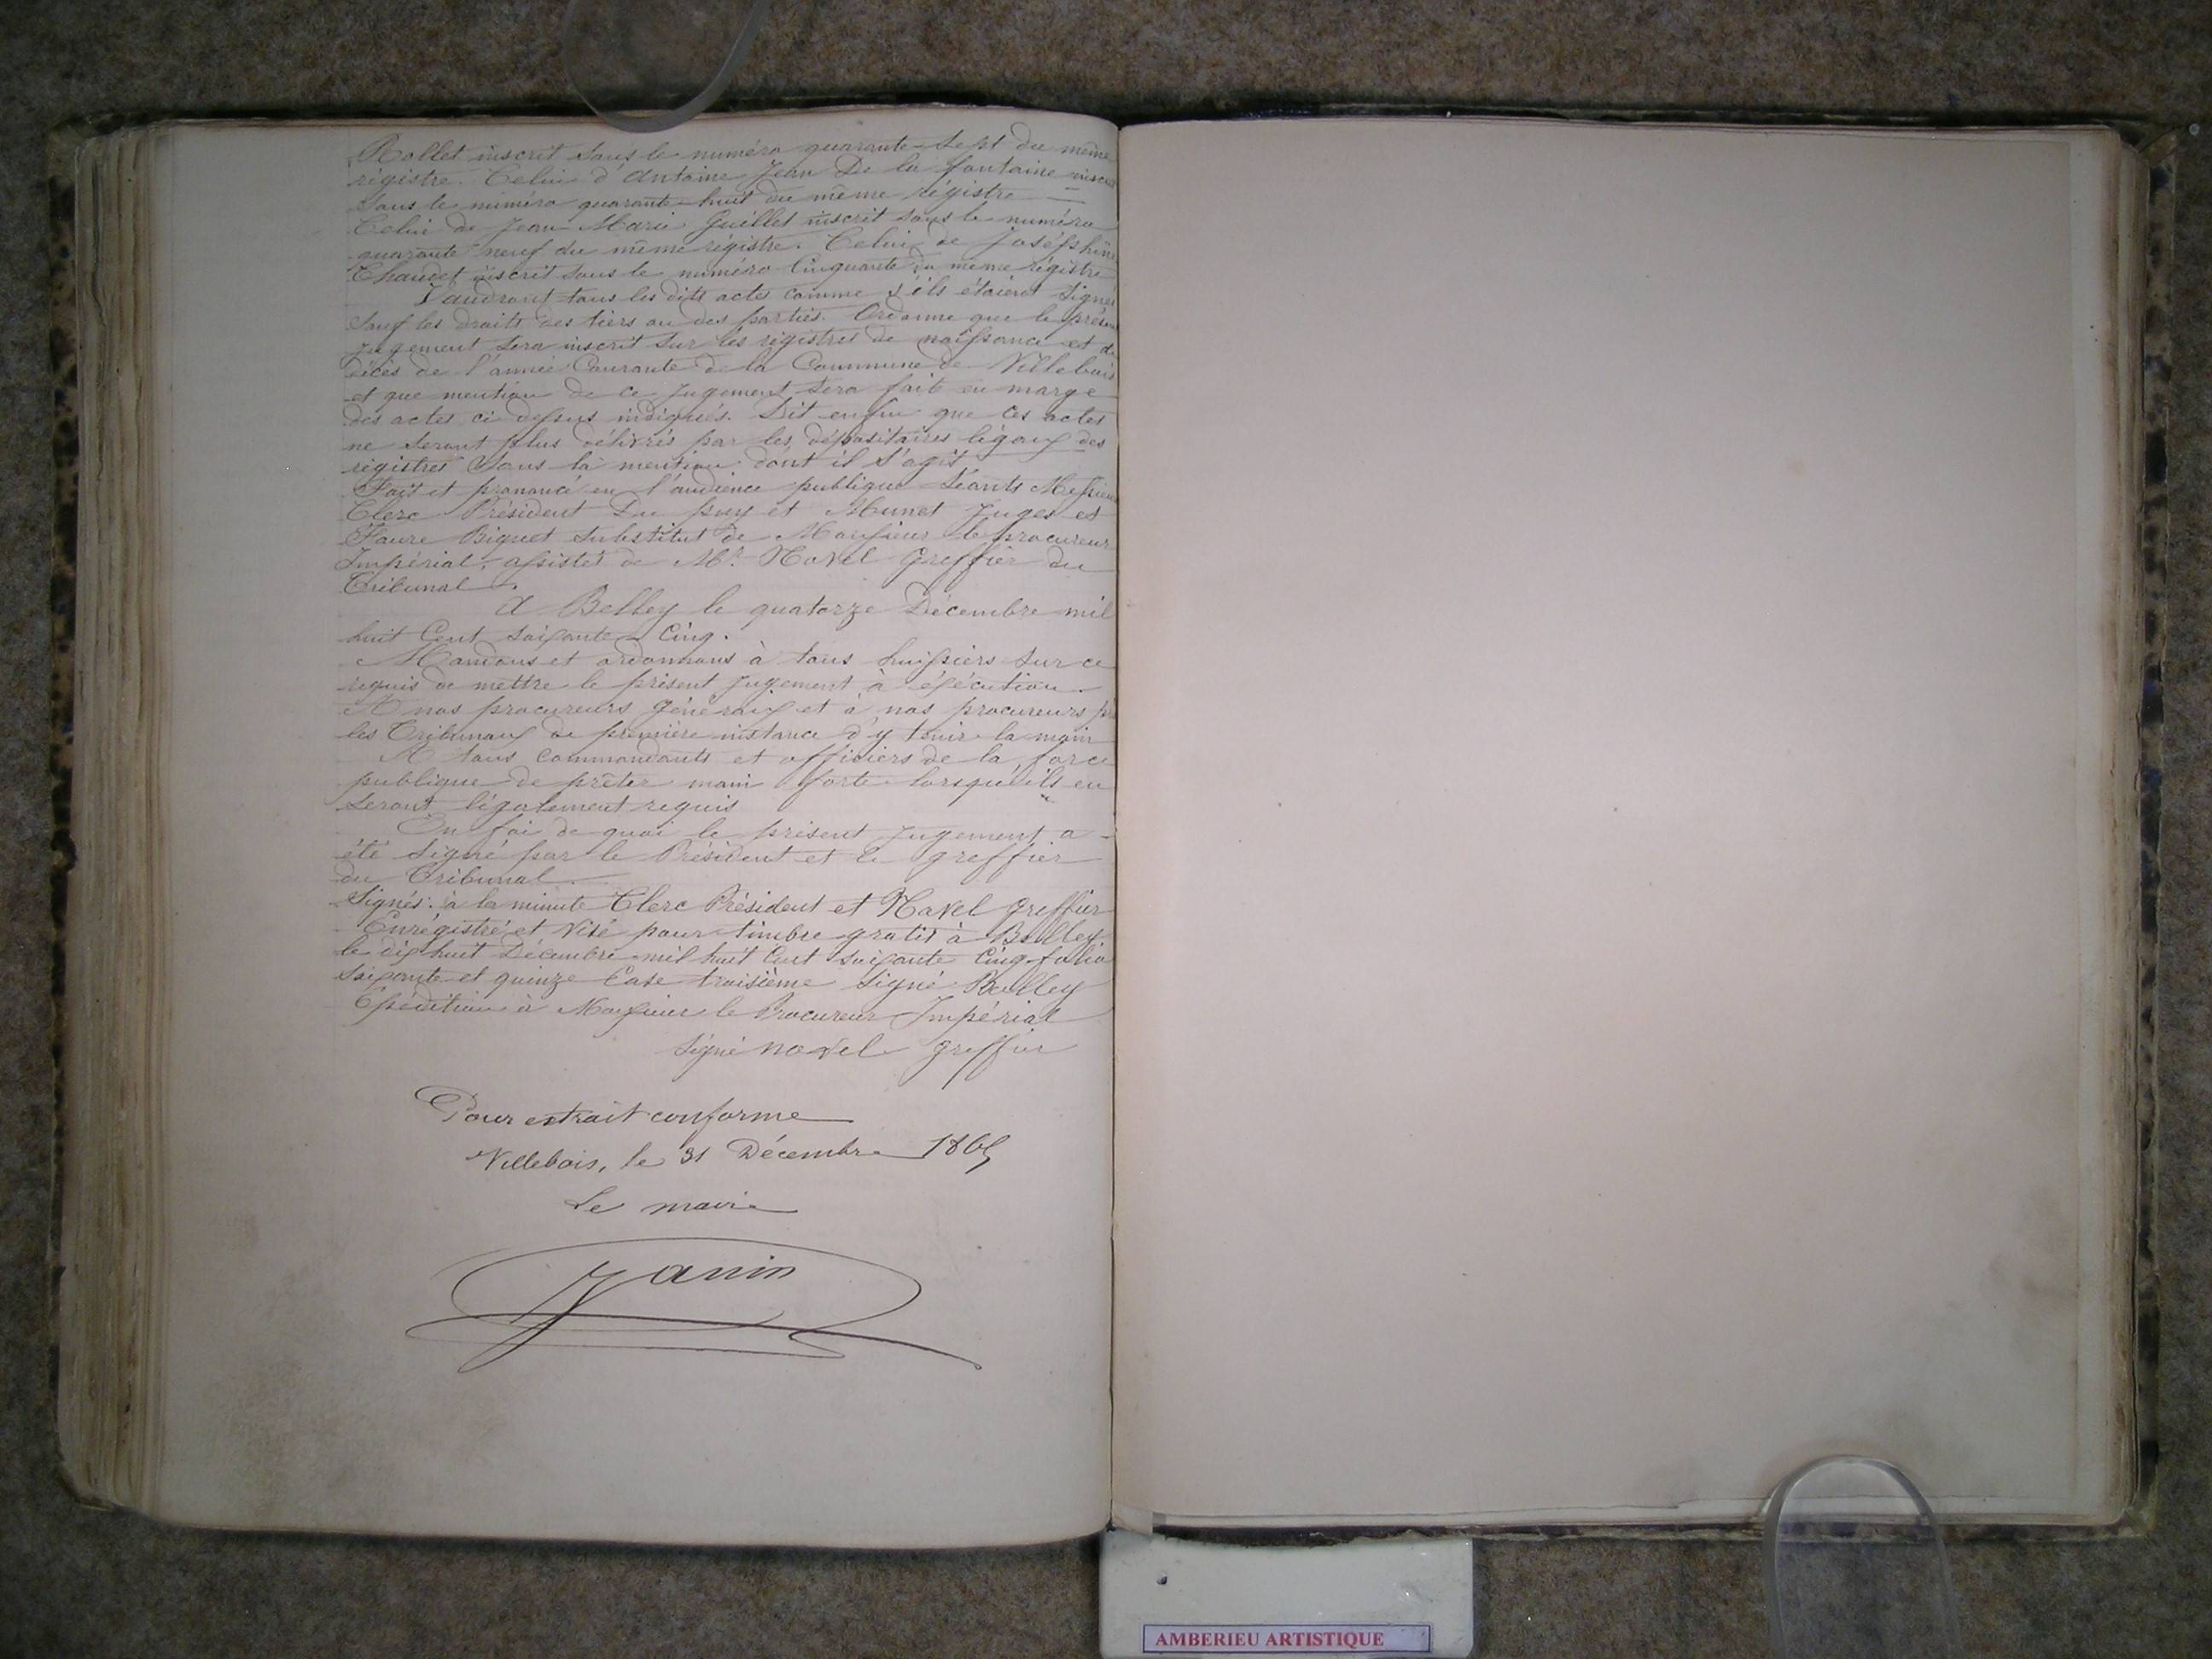 Rollet inscrit sous le numéro quarante-sept du même
régistre. Celui d'Antoine Jean De la fontaine inscrit
sous le numéro quarante-huit du même régistre —
Celui de Jean Marie Guillet inscrit sous le numéro
quarante neuf du même régistre. Celui de Joséphine
Chaudet inscrit sous le numéro Cinquante du même régistre
Vaudront tous les dits actes comme s'ils étaient signés
sauf les droits des tiers ou des parties. Ordonne que le présent
jugement sera inscrit sur les régistres de naissance et de
déces de l'année Courante de la Commune de Villebois
et que mention de ce jugement sera fait en marge
des actes ci dessus indiqués. Dit enfin que ces actes
ne seront plus délivrés par les dépositaires légaux des
régistres sans la mention dont il s'agit
Fait et prononcé en l'audience publique Séants Messieurs
Clerc Président Du puy et Munet Juges et
Faure Biguet substitut de Monsieur le procureur
Impérial, assistés de Mr. Navel Greffier du
Tribunal.
A Belley le quatorze Décembre mil
huit Cent soixante Cinq.
Mandons et ordonnons à tous huissiers sur ce
requis de mettre le présent jugement à éxécution.
A nos procureurs généraux et à nos procureurs près
les Tribunaux de première instance d'y tenir la main
A tous commandants et officiers de la force
publique de prêter main forte lorsqu'ils en
seront légalement requis
En foi de quoi le présent jugement a
été signé par le Président et le greffier
du Tribunal
Signés: à la minute Clerc Président et Navel greffier
Enrégistré et Visé pour timbre gratis à Belley
le dix huit Décembre mil huit Cent soixante Cinq folio
soixante et quinze Case troisième signé Belley
Expédition à Monsieur le Procureur Impérial
signé Navel greffier
Pour extrait conforme
Villebois, le 31 Décembre 1865
Le maire
Janin
AMBERIEU ARTISTIQUE